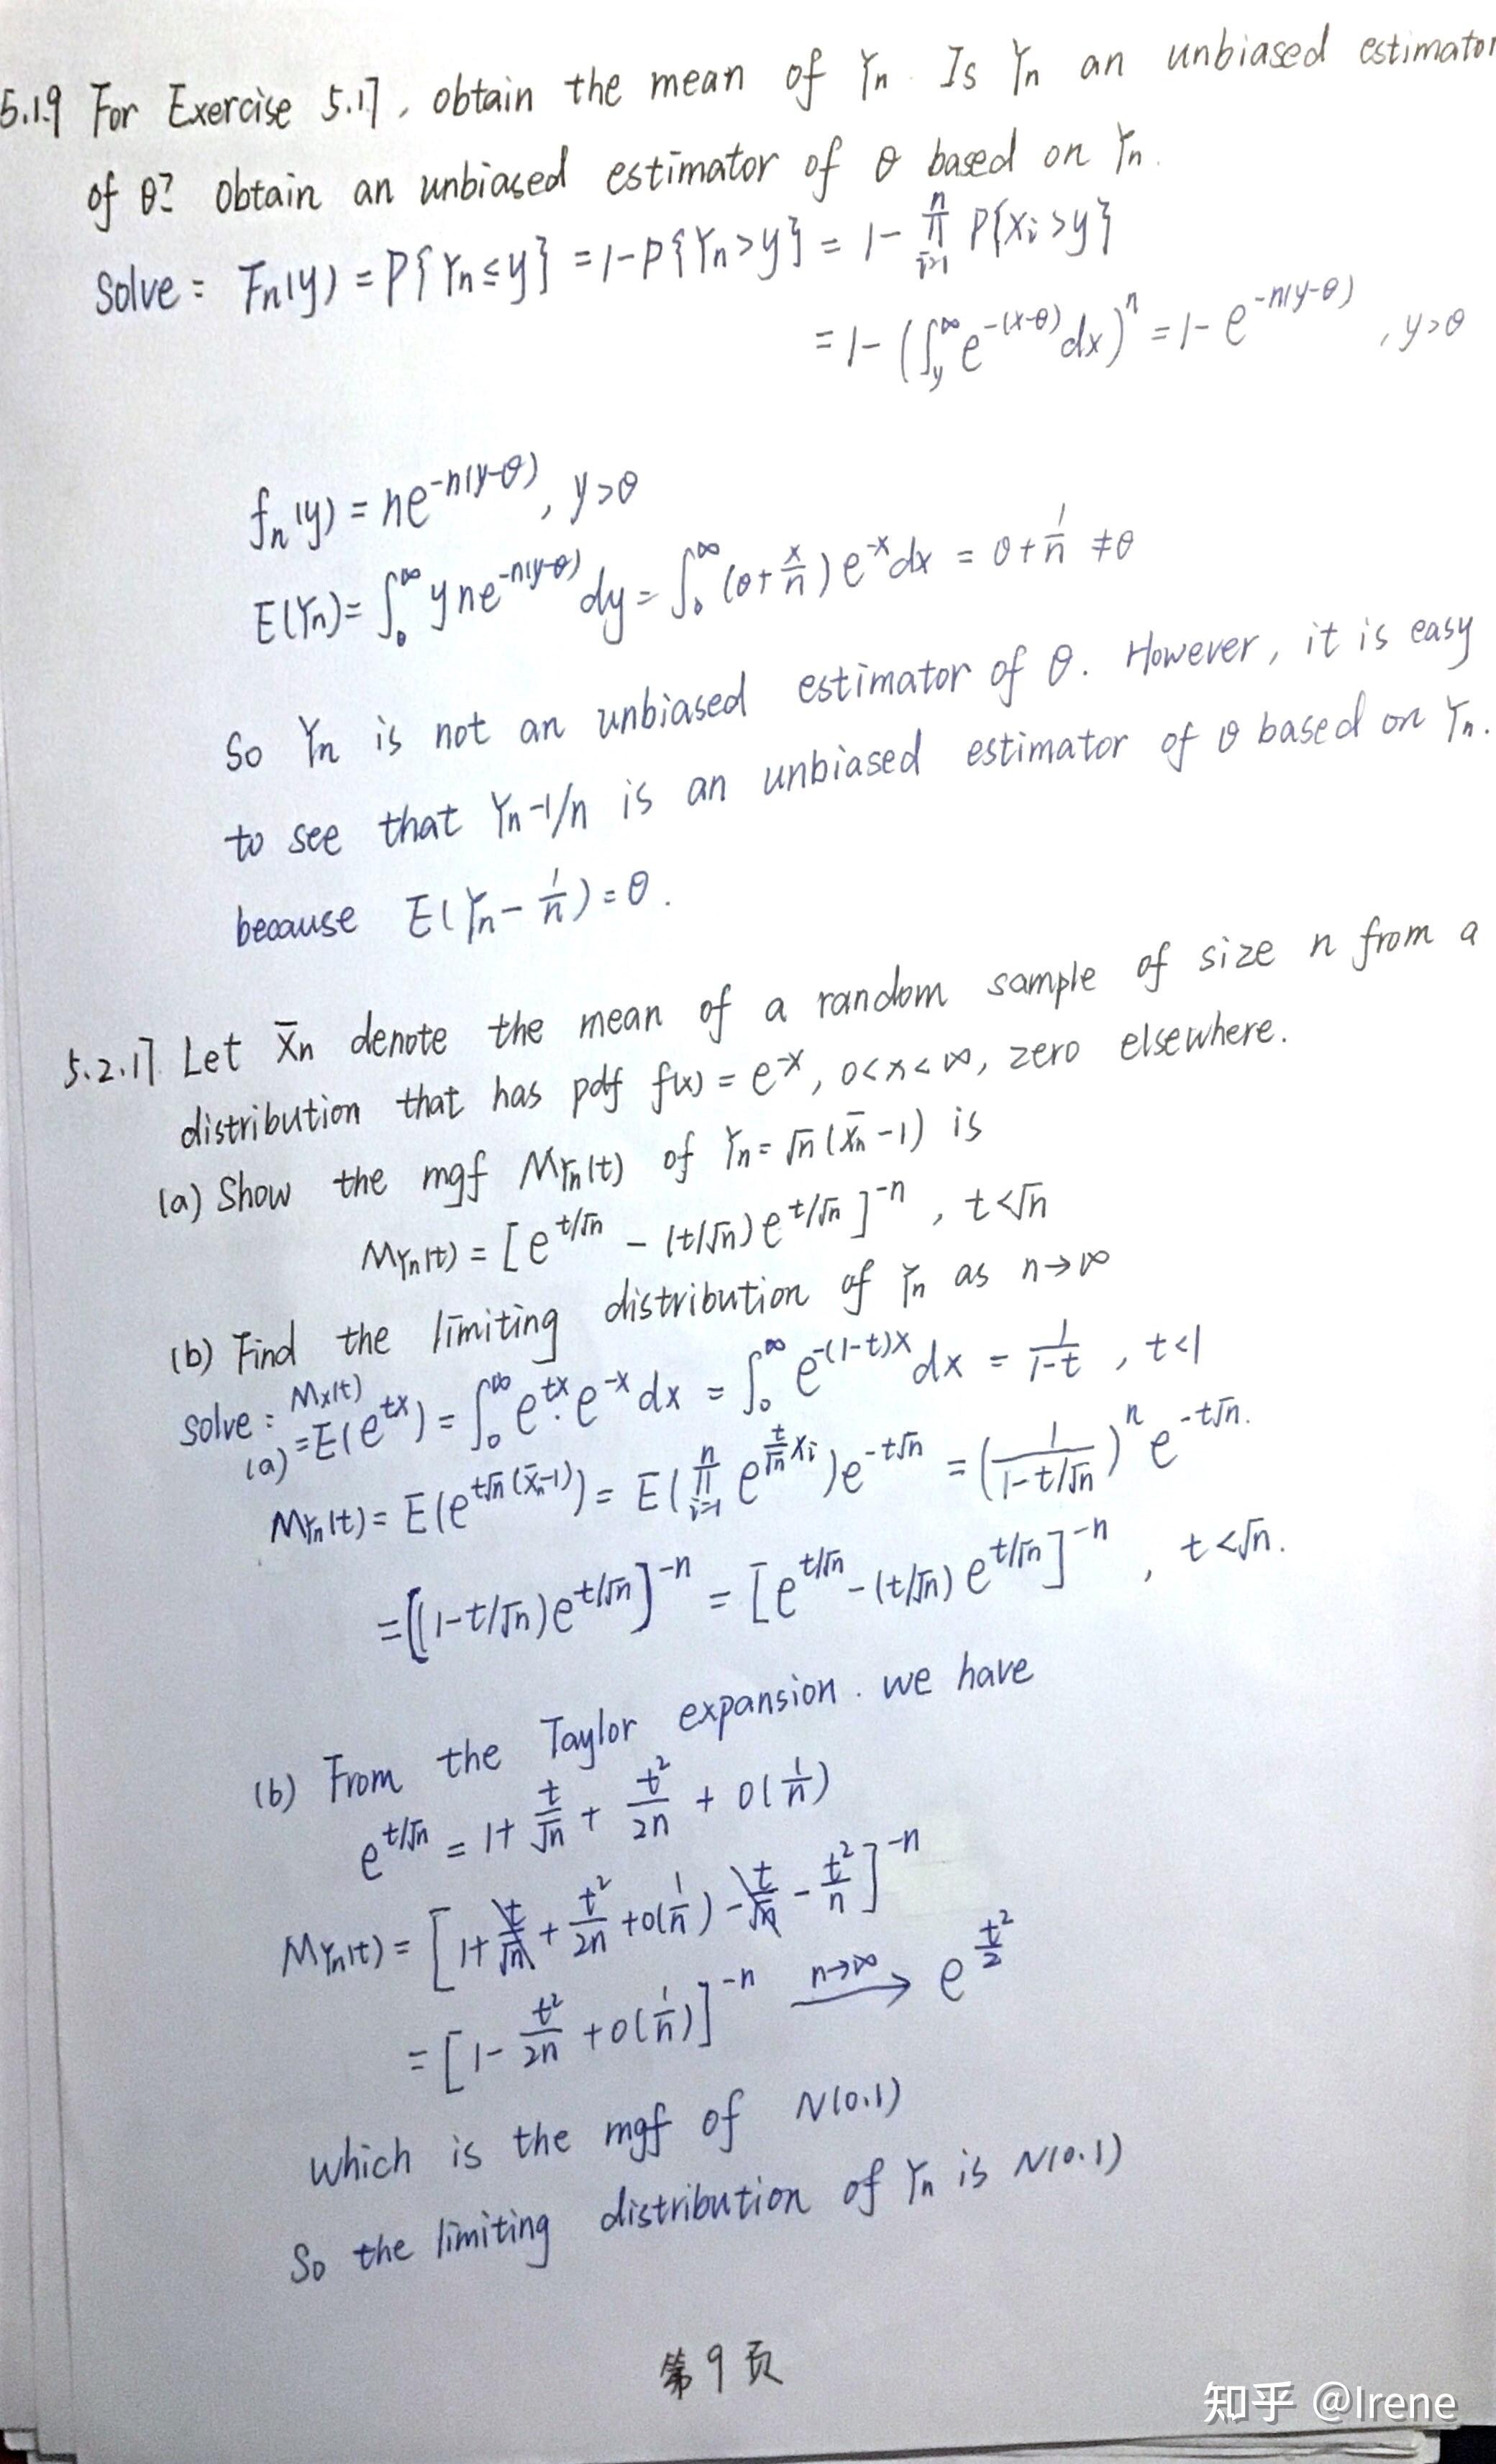 5.1.9 For Exercise 5.1.7, obtain the mean of Yn. Is Yn an unbiased estimator
of θ? Obtain an unbiased estimator of θ based on Yn.
Solve: Fn(y) = P{Yn≤y} = 1-P{Yn>y} = 1-∏_{i=1}^{n} P{Xi>y}
= 1-(∫_y^∞ e^{-(x-θ)}dx)^n = 1-e^{-n(y-θ)}, y>θ
fn(y) = ne^{-n(y-θ)}, y>θ
E(Yn) = ∫_θ^∞ yne^{-n(y-θ)}dy = ∫_0^∞ (θ+x/n)e^{-x}dx = θ+1/n ≠θ
So Yn is not an unbiased estimator of θ. However, it is easy
to see that Yn-1/n is an unbiased estimator of θ based on Yn.
because E(Yn-1/n)=θ.
5.2.17 Let X̄n denote the mean of a random sample of size n from a
distribution that has pdf f(x) = e^{-x}, 0<x<∞, zero elsewhere.
(a) Show the mgf M_{Yn}(t) of Yn=√n(X̄n-1) is
M_{Yn}(t) = [e^{t/√n} - (t/√n)e^{t/√n}]^{-n}, t<√n
(b) Find the limiting distribution of Yn as n→∞
Solve: (a) Mx(t) = E(e^{tx}) = ∫_0^∞ e^{tx}·e^{-x}dx = ∫_0^∞ e^{-(1-t)x}dx = 1/(1-t), t<1
M_{Yn}(t) = E(e^{t√n(X̄n-1)}) = E(∏_{i=1}^{n} e^{t/√n Xi})e^{-t√n} = (1/(1-t/√n))^n e^{-t√n}.
=[(1-t/√n)e^{t/√n}]^{-n} = [e^{t/√n}-(t/√n)e^{t/√n}]^{-n}, t<√n.
(b) From the Taylor expansion. we have
e^{t/√n} = 1+t/√n+t²/2n+o(1/n)
M_{Yn}(t) = [1+t/√n+t²/2n+o(1/n)-t/√n-t²/n]^{-n}
= [1-t²/2n+o(1/n)]^{-n} n→∞ → e^{t²/2}
which is the mgf of N(0.1)
So the limiting distribution of Yn is N(0.1)
第9页
知乎 @Irene